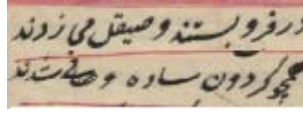 در فرو بستند و صیقل می زدند
همچو گردون ساده و صافی شدند